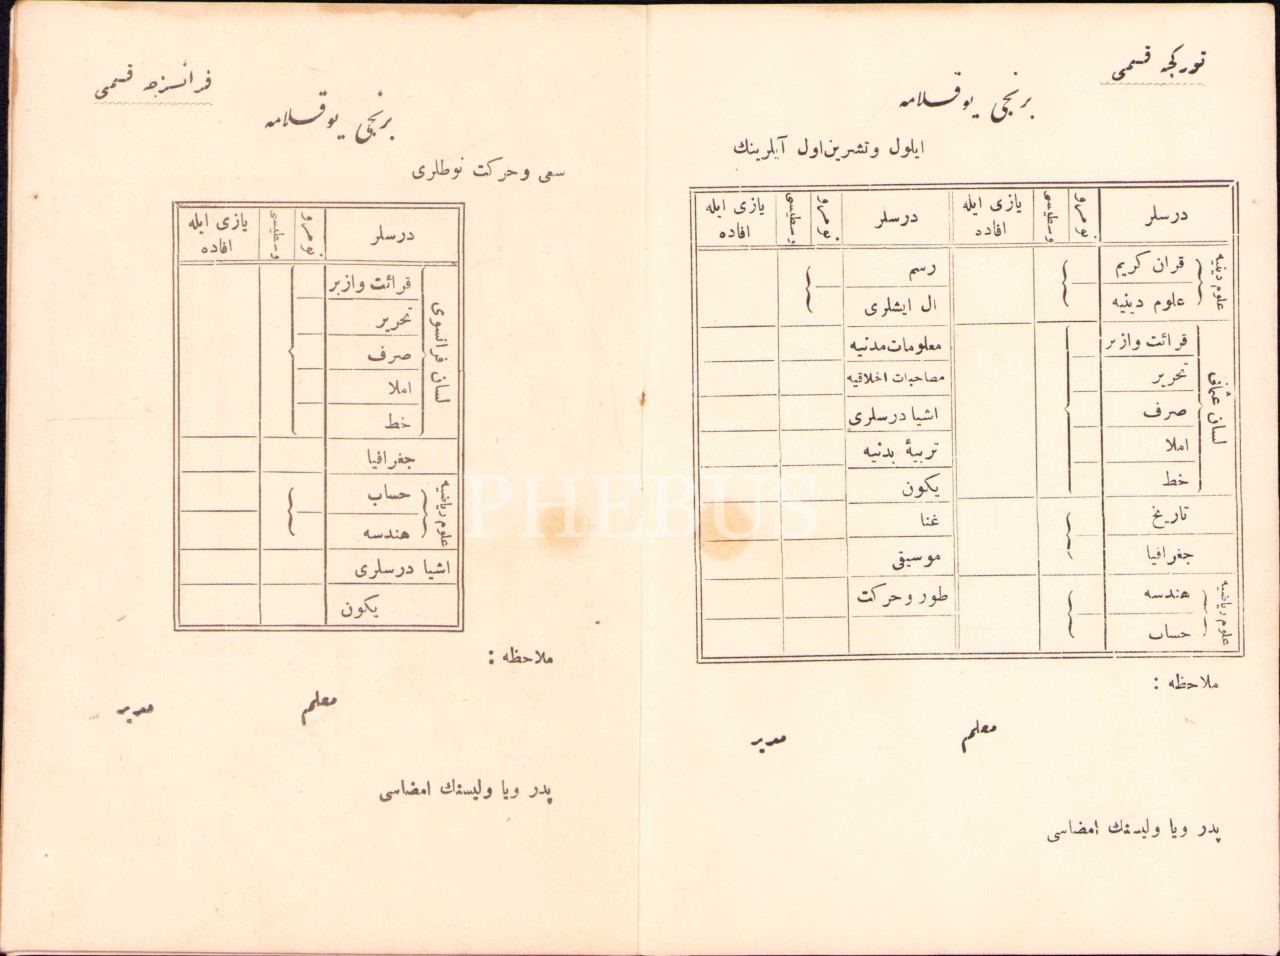 توركجه قسمی
برنجی یوقلامه
ایلول وتشرین‌اول آیلرینك
درسلر نومرو وسطیسی یازی ایله افاده درسلر نومرو وسطیسی یازی ایله افاده
علوم دینیه
قران كریم
علوم دینیه
لسان عثمانی
قرائت وازبر
تحریر
صرف
املا
خط
تاریخ
جغرافیا
علوم ریاضیه
هندسه
حساب
رسم
ال ایشلری
معلومات‌مدنیه
مصاحبات اخلاقیه
اشیا درسلری
تربیۀ بدنیه
یكون
غنا
موسیقی
طور وحركت
ملاحظه :
معلم مدیر
پدر ویا ولیسنك امضاسی
فرانسزجه قسمی
برنجی یوقلامه
سعی وحركت نوطلری
درسلر نومرو وسطیسی یازی ایله افاده
لسان فرانسوی
قرائت وازبر
تحریر
صرف
املا
خط
جغرافیا
علوم ریاضیه
حساب
هندسه
اشیا درسلری
یكون
ملاحظه :
معلم مدیر
پدر ویا ولیسنك امضاسی
PHEBUS